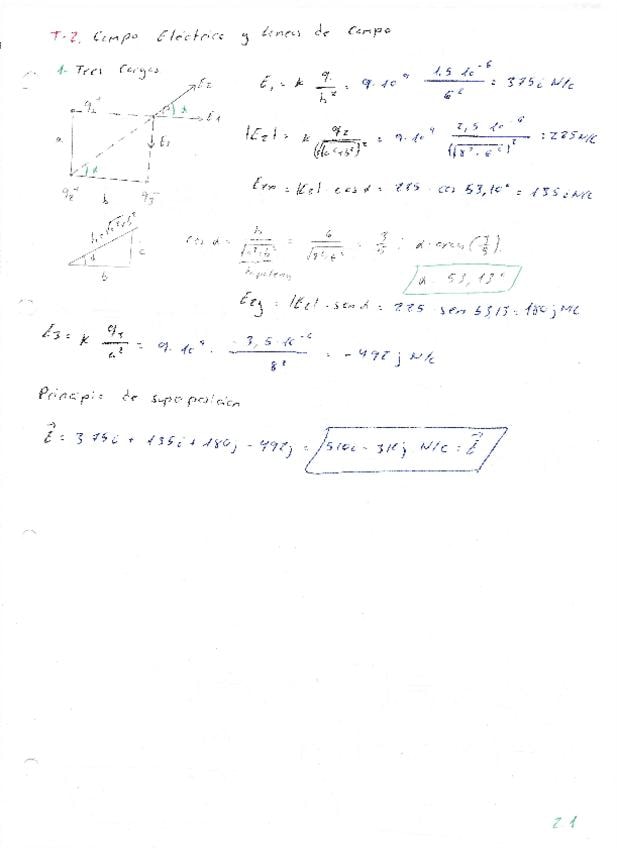 T-2. Campo Eléctrico y líneas de campo
1- Tres Cargas
E2
q1+ E1
α
E3
a
α
q2+ b q3-
E1 = k q1/b² = 9·10⁹ 1,5·10⁻⁶/6² = 375i N/C
|E2| = k q2/(√(a²+b²))² = 9·10⁹ 2,5·10⁻⁶/(√(8²+6²))² = 225 N/C
E2x = |E2| · cos α = 225 · cos 53,10° = 135i N/C
h=√a²+b²
α
b
cos α = b/√(a²+b²) = 6/√(8²+6²) = 3/5
hipotenusa
α = 53,13°
E2y = |E2| · sen α = 225 · sen 53,13 = 180j N/C
= 9·10⁹ · -3,5·10⁻⁶/8² = -492j N/C
Principio de superposición
E = 375i + 135i + 180j - 492j = 510i - 312j N/C = E
21